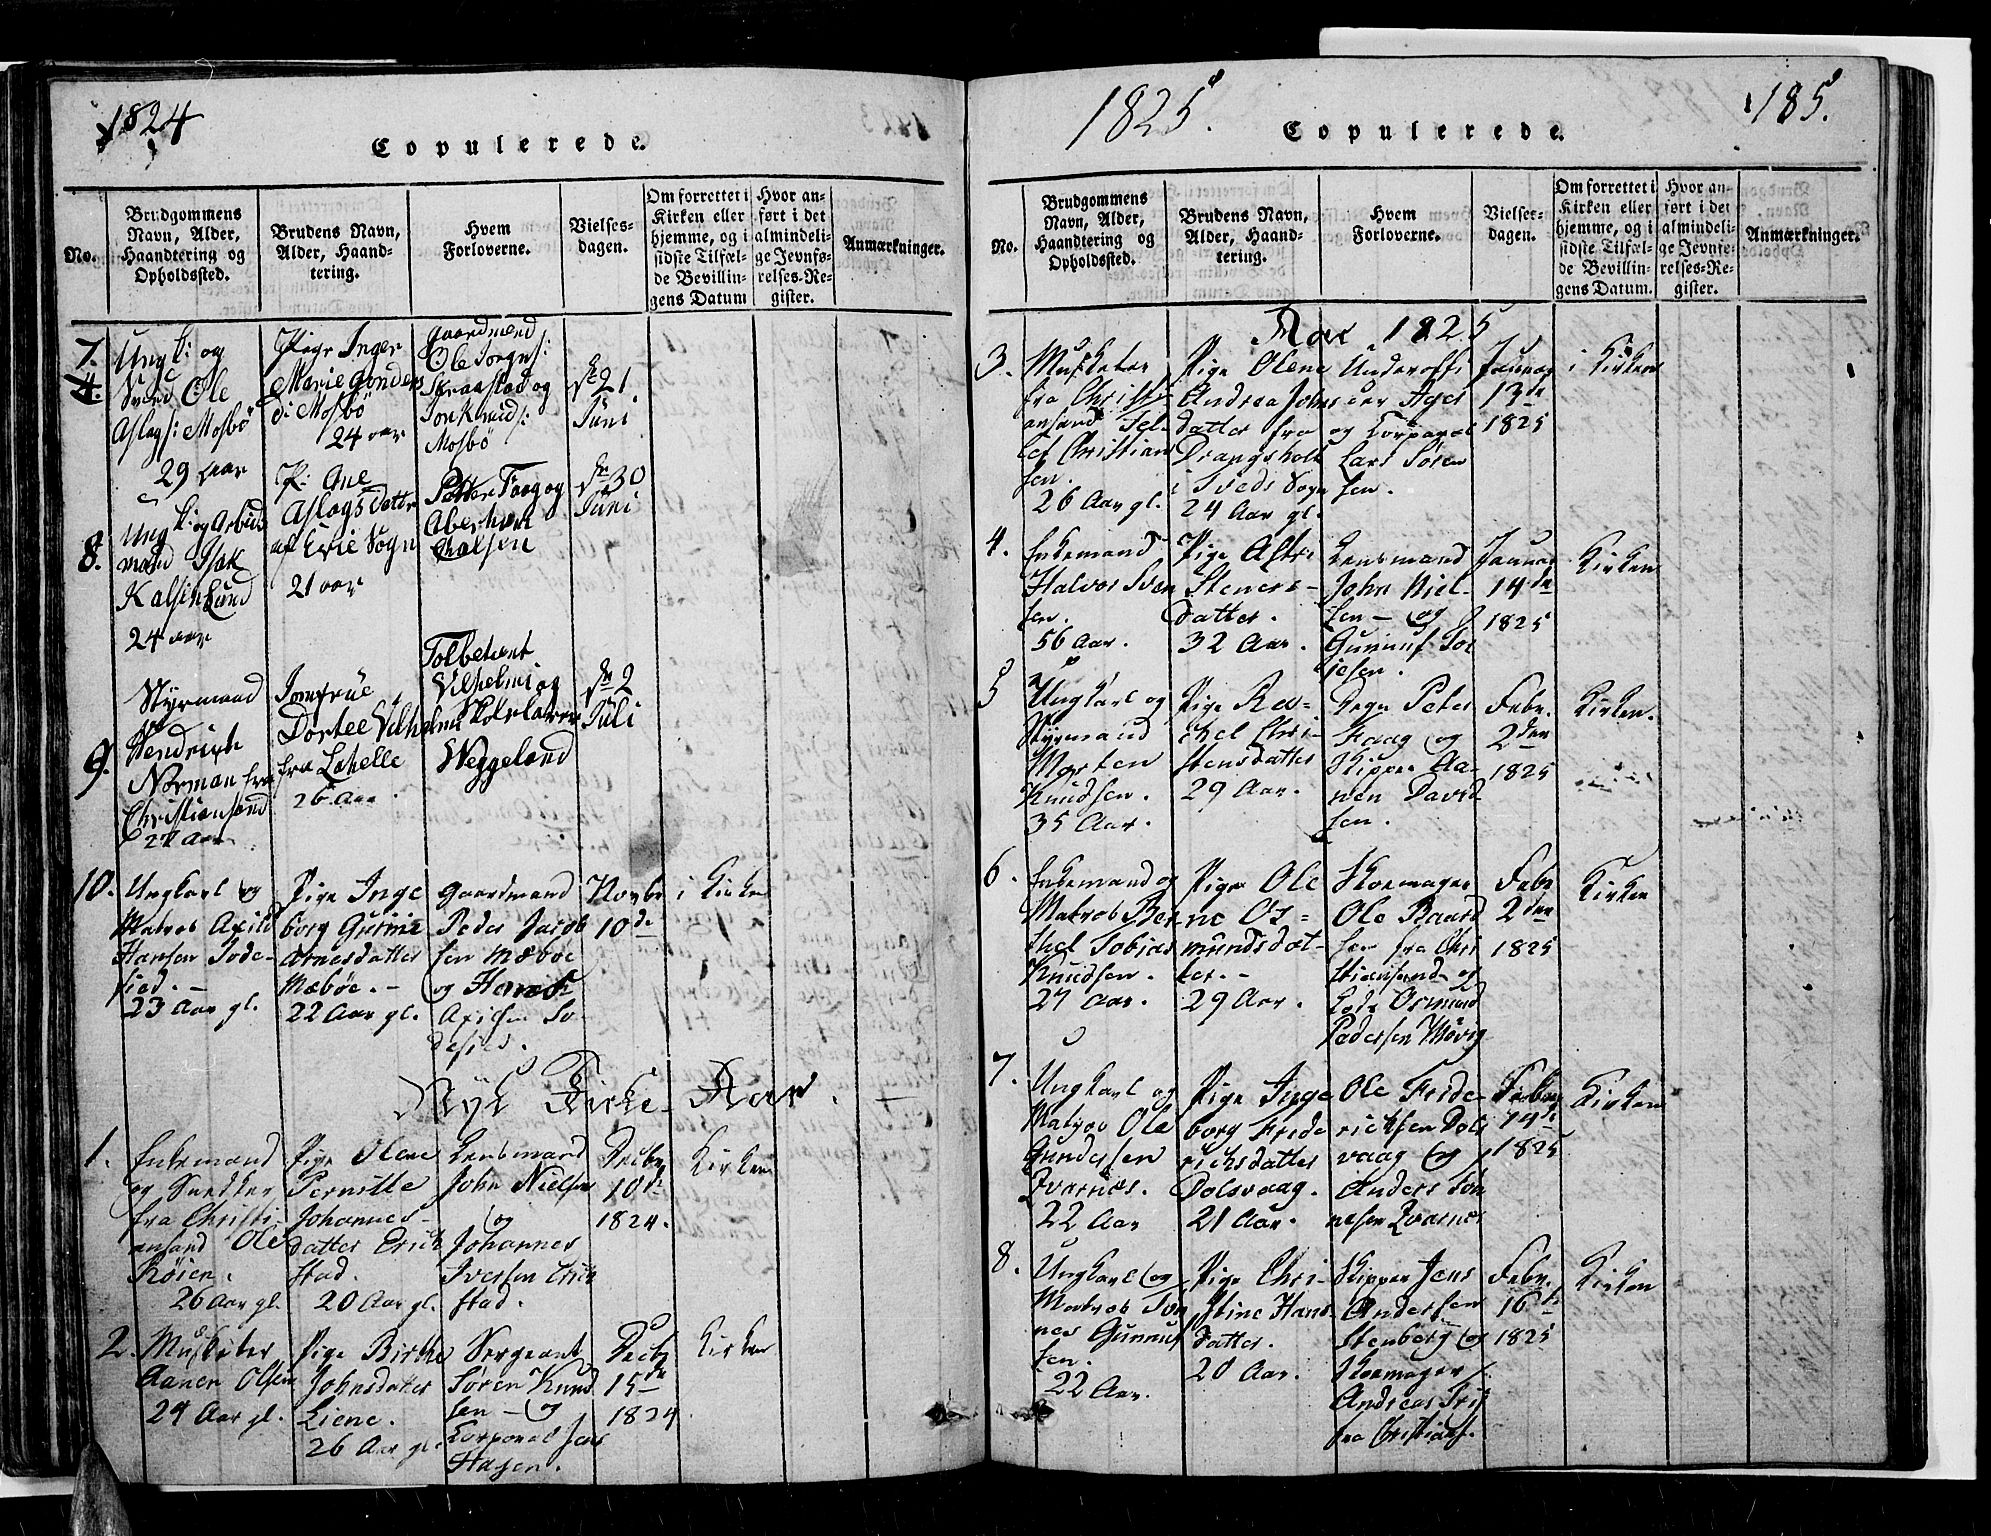 1824
Copulerede.
No.
Brudgommens
Navn, Alder,
Haandtering og
Opholdssted.
Brudens Navn,
Alder, Haand-
tering.
Hvem
Forloverne.
Vielses-
dagen.
Om forrettet i
Kirken eller
hjemme, og i
sidste Tilfæl-
de Bevillin-
gens Datum
Hvor an-
ført i det
almindeli-
ge Jevnfø-
relses-Re-
gister.
Anmærkninger.
7.
4.
Ungk: og
Ole
Aslags: Mosbö
29 aar
Pige Inger
Marie
Mosbö
24 aar
Gaardmænd
Ole
og
Mosbö
21
Juni
8.
Ungk: og Arbeids
mand Isak
Lund
24 aar
P:
Aslags Datter
af Sogn
21 aar
Petter Faag og
30
Juni
9.
Styrmand
Hendrich
Norman fra
Christiansand
27 Aar
Jomfrue
Dortee Vilhelmi
fra Lahelle
26 Aar
Vilhelmi og
Skolelærer
Weggeland
2
Juli
10.
Ungkarl og
Matros Axild
Hansen Tode-
fied. -
23 Aar gl.
Pige Inge
borg Gurine
Arnesdatter
Mæbøe. -
22 Aar gl.
Gaardmand
Peder Jacob
sen Mæbøe
og
Novbr
10de
i Kirken
Nÿt Kirke-Aar.
1.
Enkemand
og Snedker
fra Christi
ansand Ole
Röien.
26 Aar gl.
Pige Olene
Pernille
Johannes-
datter Erick
stad.
20 Aar gl.
Lensmand
John Nielsen
og
Johannes
Iversen Erick
stad.
Decbr
10de
1824.
Kirken
2.
Musketer
Aanen Olsen
24 Aar gl.
Pige Birthe
Johnsdatter
Liene.
26 Aar gl.
Sergeant
Søren Knud
sen - og
Corporal Jens
Decbr
15de
1824
Kirken
1825.
Copulerede.
185.
No.
Brudgommens
Navn, Alder,
Haandtering og
Opholdssted.
Brudens Navn,
Alder, Haand-
tering.
Hvem
Forloverne.
Vielses-
dagen.
Om forrettet i
Kirken eller
hjemme, og i
sidste Tilfæl-
de Bevillin-
gens Datum.
Hvor an-
ført i det
almindeli-
ge Jevnfø-
relses-Re-
gister.
Anmærkninger.
Aar 1825
3.
Musketer
fra Christi
ansand Tel-
lef Christian
sen.
26 Aar gl.
Pige Olene
Andrea Johns
datter fra
Drangsholt
i Tveds Sogn
24 Aar gl.
Underoffi
cer Ager
og Corporal
Lars Søren
sen.
Januar
13de
1825
i Kirken
4.
Enkemand
Halvor Sven
sen.
56 Aar.
Pige Astri
Steners-
datter.
32 Aar.
Lensmand
John Niel-
sen - og
Gunnuf Tor
jesen.
Januar
14de
1825
Kirken
5
Ungkarl og
Styrmand
Morten
Knudsen.
35 Aar.
Pige Ra-
chel Chri-
stensdatter
29 Aar.
Degn Peter
Faag og
Skipper Aa-
nen David
sen.
Febr.
2den
1825
Kirken.
6.
Enkemand og
Matros Ber
thel Tobias
Knudsen.
27 Aar.
Pige Ole
ne Os=
mundsdat-
ter. -
29 Aar.
Skoemager
Ole Baard
sen fra Chri
stiansand og
Lods Osmund
Pedersen Møvig
Febr
2den
1825
Kirken
7.
Ungkarl og
Matros Ole
Gundersen
Qvarnes.
22 Aar
Pige Inge
borg Fride
richsdatter
Dolsvaag.
21 Aar.
Ole Fride-
richsen Dols
vaag og
Anders Tøn
nesen Qvarnes
Febr.
14de
1825
Kirken
8.
Ungkarl og
Matros Tøn
nes Gunnuf
sen.
22 Aar.
Pige Chri-
stine Hans
datter.
20 Aar.
Skipper Jens
Andersen
Stenberg og
Skoemager
Andreas
fra Christians.
Febr.
16de
1825
Kirken